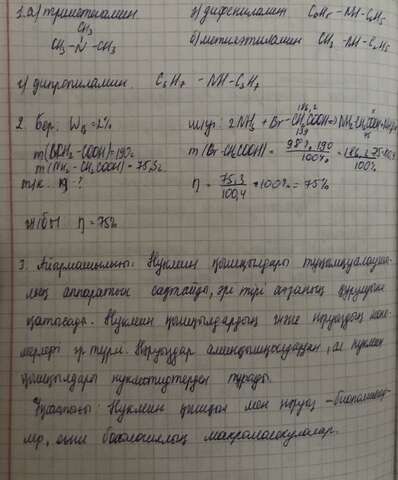 1.а) триметиламин
CH₃
CH₃-N-CH₃
в) дифениламин C₆H₅-NH-C₆H₅
б) метилэтиламин CH₃-NH-C₂H₅
г) дипропиламин. C₃H₇ -NH-C₃H₇
2. Бер: W = 2%
m(BrCH₂-COOH)=190г
m(NH₂-CH₂COOH)=75,3г
т/к. η-?
2NH₃ + Br-CH₂COOH
186,2
139
75
m(Br-CH₂COOH) = 98%·190 / 100% = 186,2
η = 75,3 / 100,4 ·100% = 75%
ж/бы η = 75%
3. Айырмашылығы: Нуклеин қышқылдары тұқымқуалаушы-
лық аппаратын сақтайды, әр түрлі ағзаның құрылуына
қатысады. Нуклеин қышқылдардың және нәруыздың моно-
мерлері әр түрлі. Нәруыздар аминқышқылдардан, ал нуклеин
қышқылдары нуклеотидтерден тұрады.
Ұқсастығы: Нуклеин қышқыл мен нәруыз -биополимер-
лер, яғни биологиялық макромолекулалар.